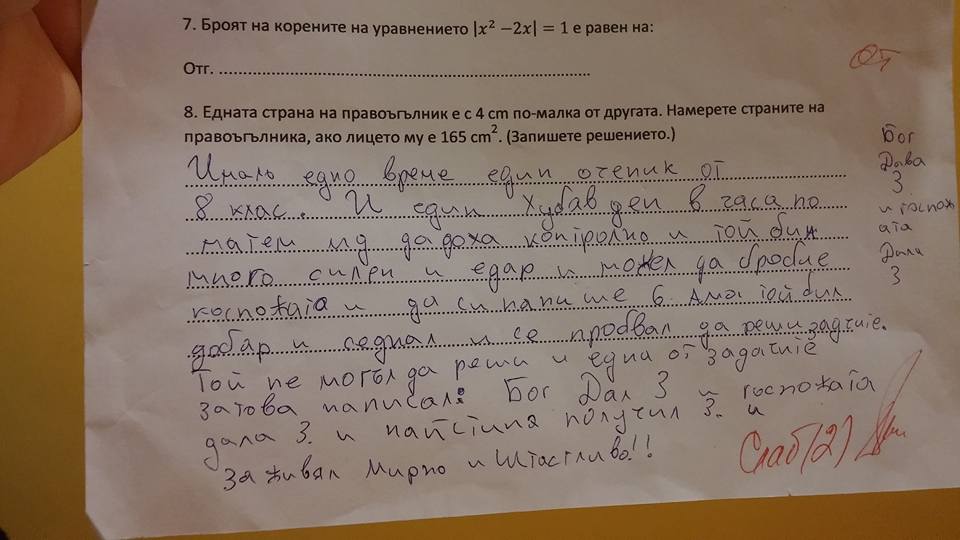 7. Броят на корените на уравнението |x² −2x| = 1 е равен на:
Отг. ..........................................................................................
От
8. Едната страна на правоъгълник е с 4 cm по-малка от другата. Намерете страните на
правоъгълника, ако лицето му е 165 cm². (Запишете решението.)
Имало едно време един оченик от
8 клас. И един хубав ден в часа по
матем му дадоха контролно и той бил
много силен и едар и можел да
коспожата и да си напише 6. Ама той бил
добар и седнал и се пробвал да реши задчите.
Той не могъл да реши и една от задачите
затова написал: Бог Дал 3 и госпожата
дала 3. и наистина получил 3. и
заживял мирно и щтастливо!!
Бог
Дава
3
и госпож
ата
Дала
3
Слаб (2)